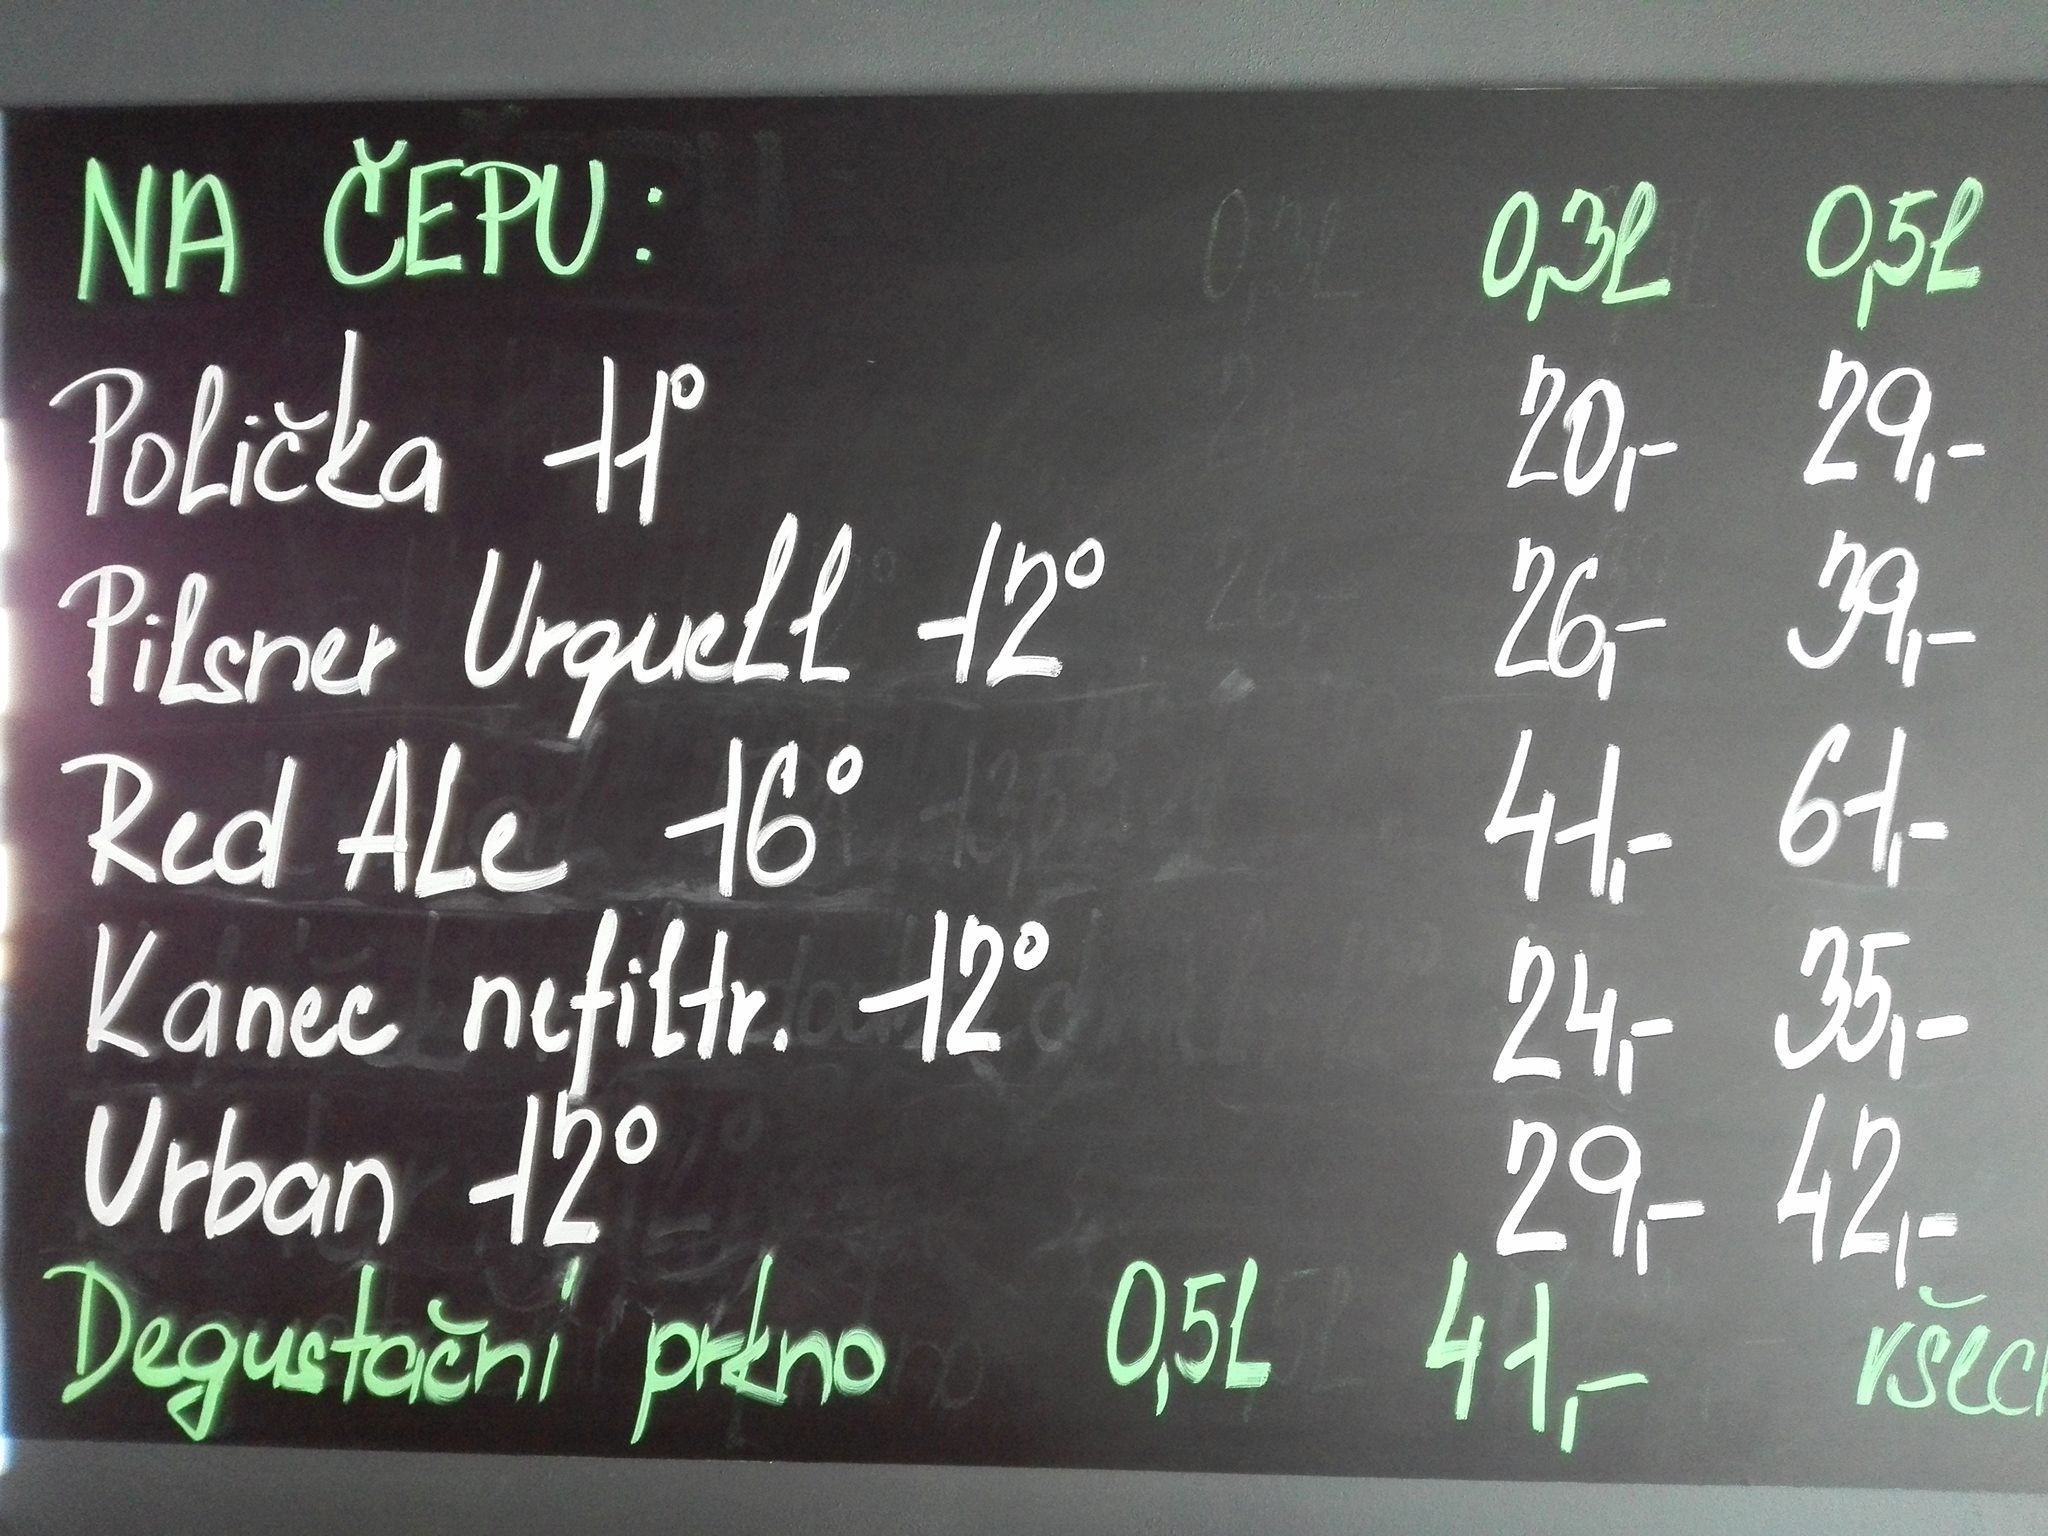 NA ČEPU: 0,3L 0,5L
Polička 11° 20,- 29,-
Pilsner Urquell 12° 26,- 39,-
Red Ale 16° 41,- 61,-
Kanec nefiltr. 12° 24,- 35,-
Urban 12° 29,- 42,-
Degustační prkno 0,5L 41,- všech